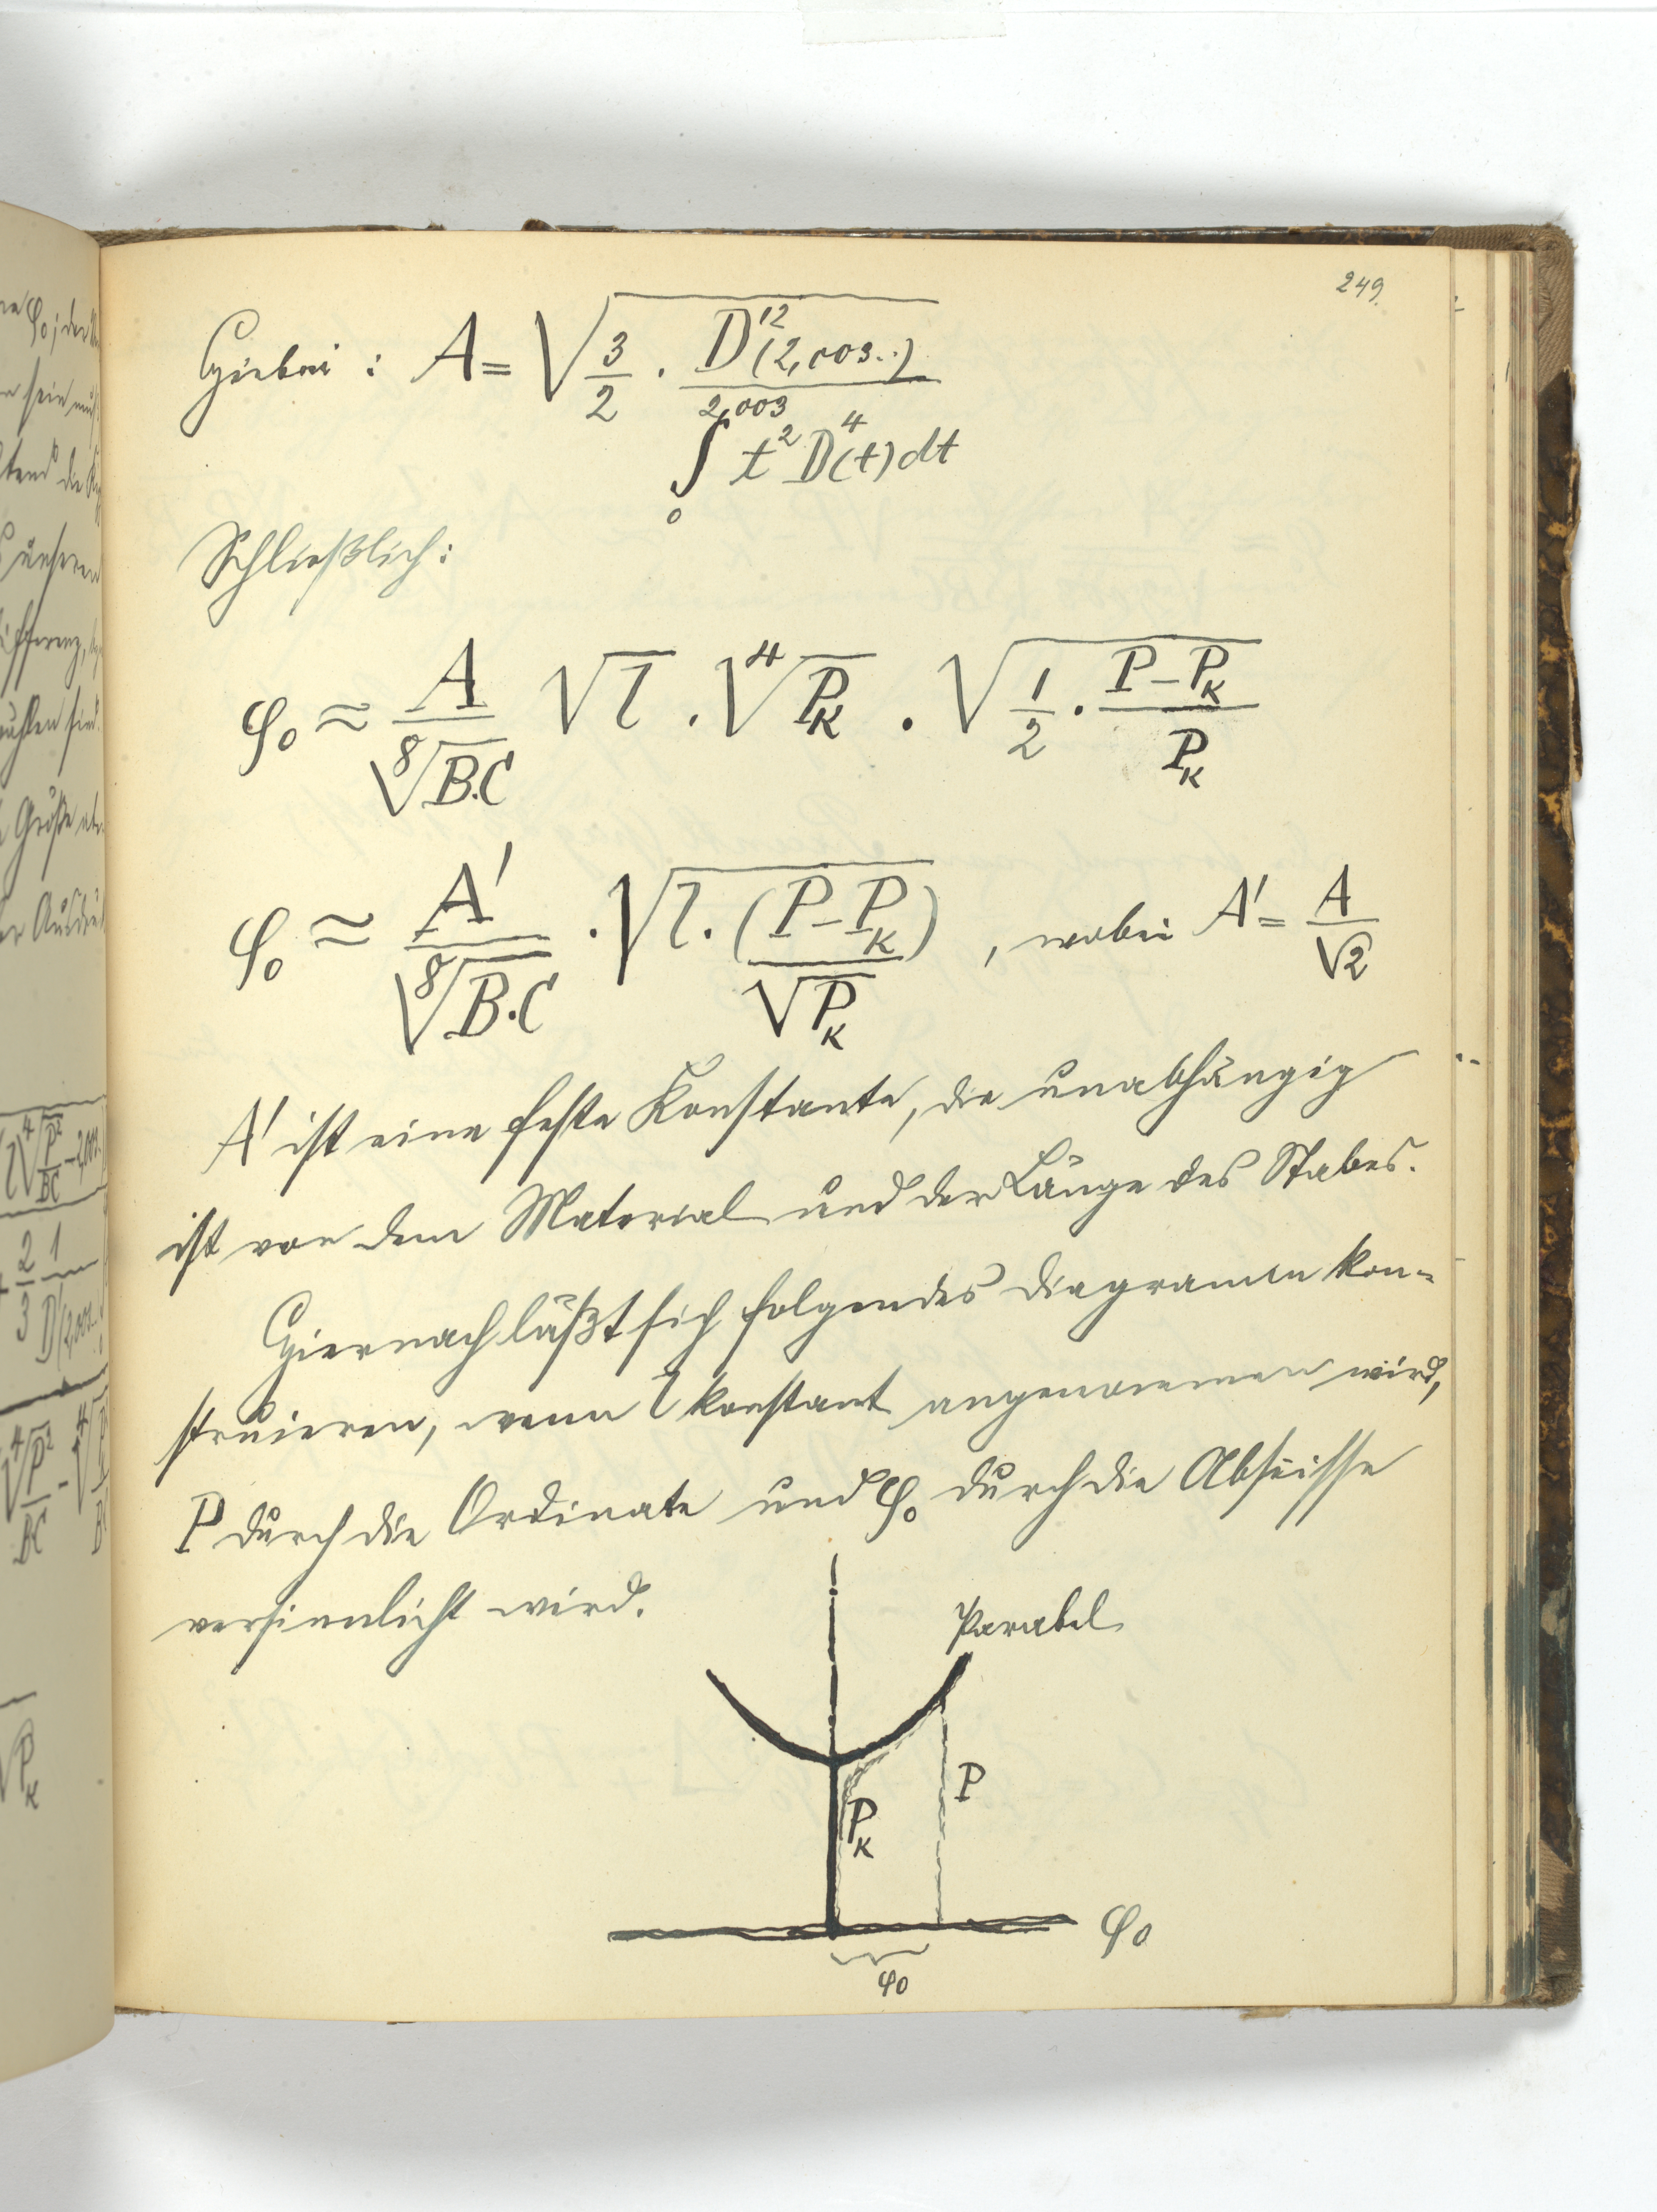 249.
Hiebei : A = √(3/2 · D'²(2,003..) / ∫₀^2,003 t² D⁴(t) dt)
Schließlich:
φ₀ ≈ A/⁸√(B.C) √l · ⁴√P_K · √(1/2 · (P-P_K)/P_K)
φ₀ ≈ A'/⁸√(B·C) · √(l · (P-P_K)/√P_K) , wobei A' = A/√2
A' ist eine feste Konstante, die unabhängig
ist von dem Material und der Länge des Stabes.
Hiernach läßt sich folgendes Diagramm kon-
struieren, wenn l konstant angenommen wird,
P durch die Ordinate und φ₀ durch die Abscisse
versinnlicht wird.
Parabel
P_K
P
φ₀
φ₀